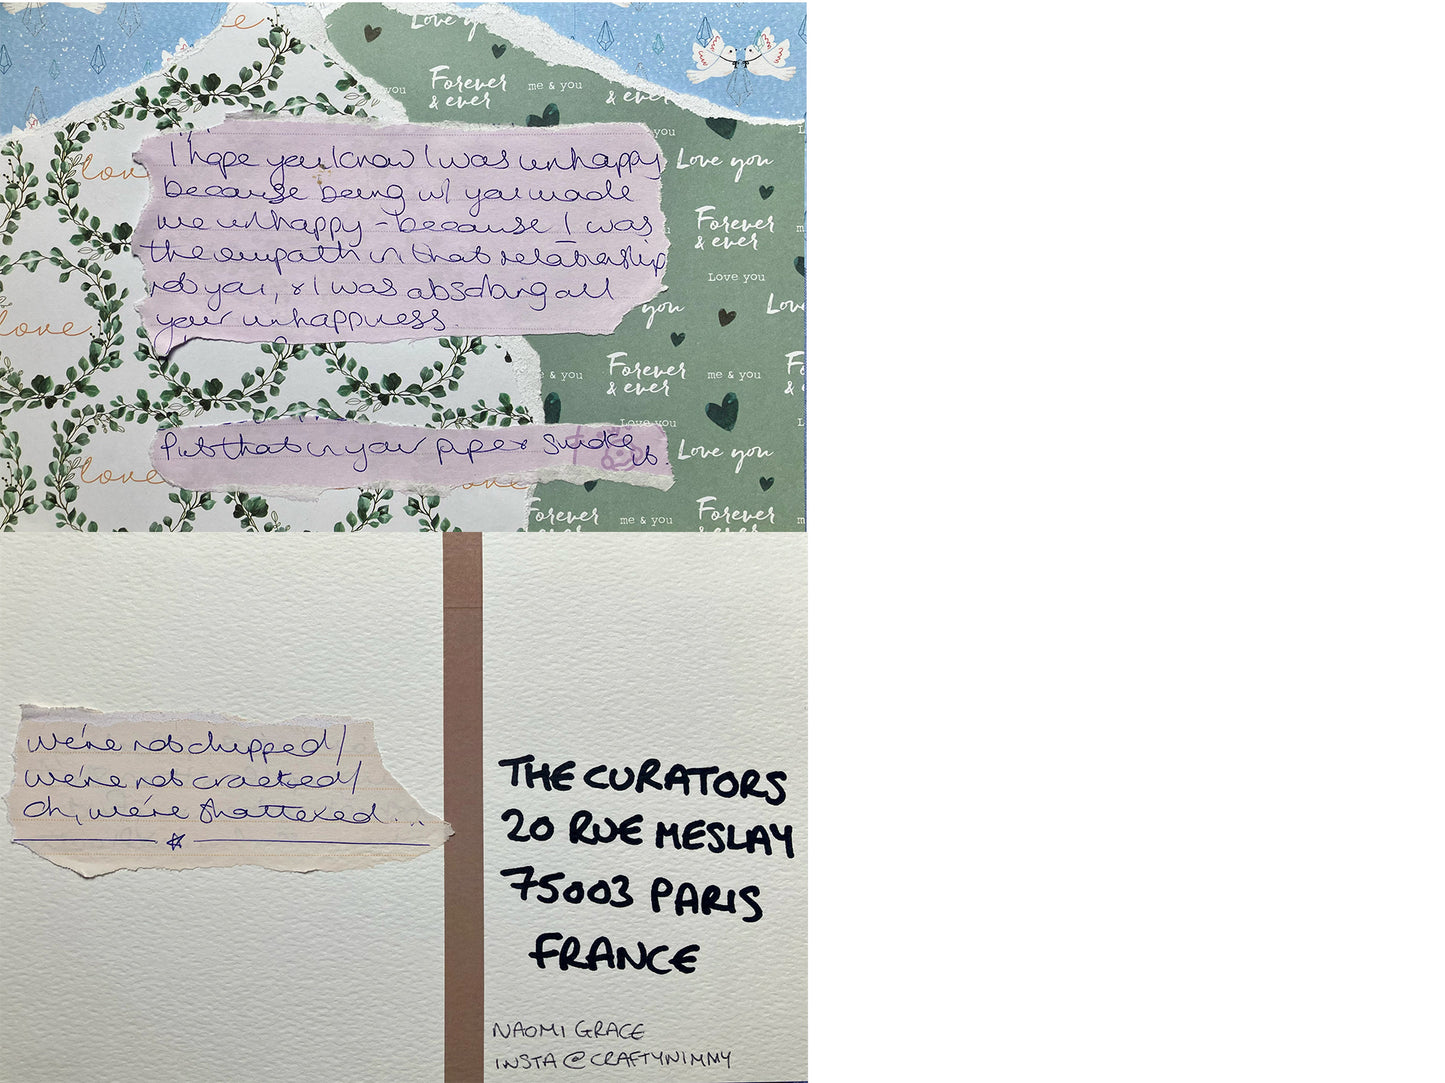 love
Love you
Forever
& ever
me & you
& ever
you
you
Love you
love
I hope you know I was unhappy
because being w/ you made
me unhappy - because I was
the empath in that relationship
not you, & I was absorbing all
your unhappiness.
Forever
& ever
Love you
Love
you
love
Forever
& ever
& you
me & you
Love you
Put that in your pipe & smoke it.
Love you
love
Forever
me & you
Forever
& ever
we're not chipped/
we're not cracked/
Oh, we're shattered...
THE CURATORS
20 RUE MESLAY
75003 PARIS
FRANCE
NAOMI GRACE
INSTA @CRAFTYNIMMY